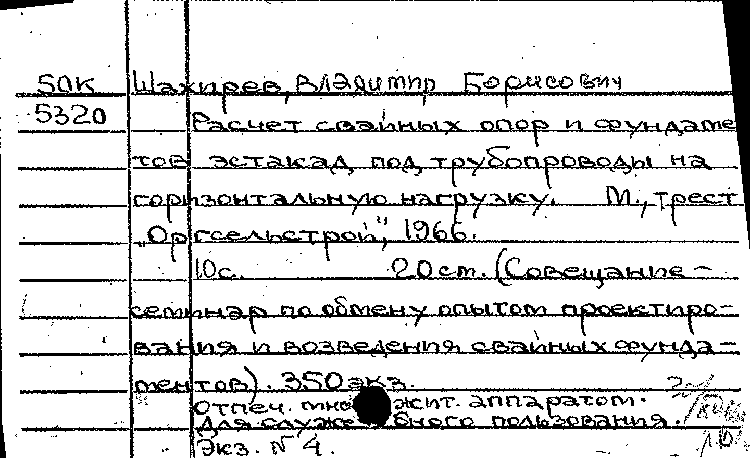 50К Шахирев, Владимир Борисович
5320 Расчет свайных опор и фундаме
тов эстакад под трубопроводы на
горизонтальную нагрузку. М., трест
„Оргсельстрой", 1966.
10с. 20 ст. (Совещание-
семинар по обмену опытом проектиро-
вания и возведения свайных фунда-
ментов). 350 экз.
Отпеч. множит. аппаратом.
Для служебного пользования.
Экз. N 4.